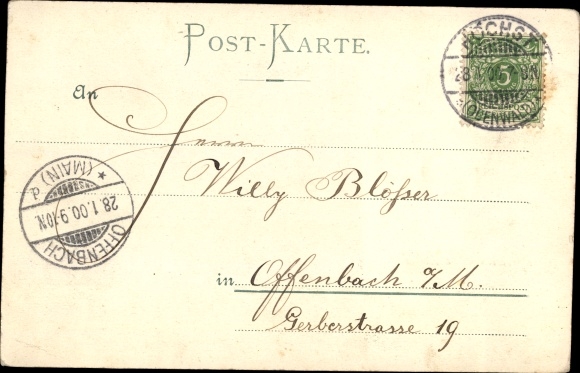 POST-KARTE.
HÖCHST
28 1 00
(ODENWALD)
5
An
Herrn
Willy Blößer
* (MAIN) d
28.1.00.9-10N.
OFFENBACH
in Offenbach a/M.
Gerberstrasse 19